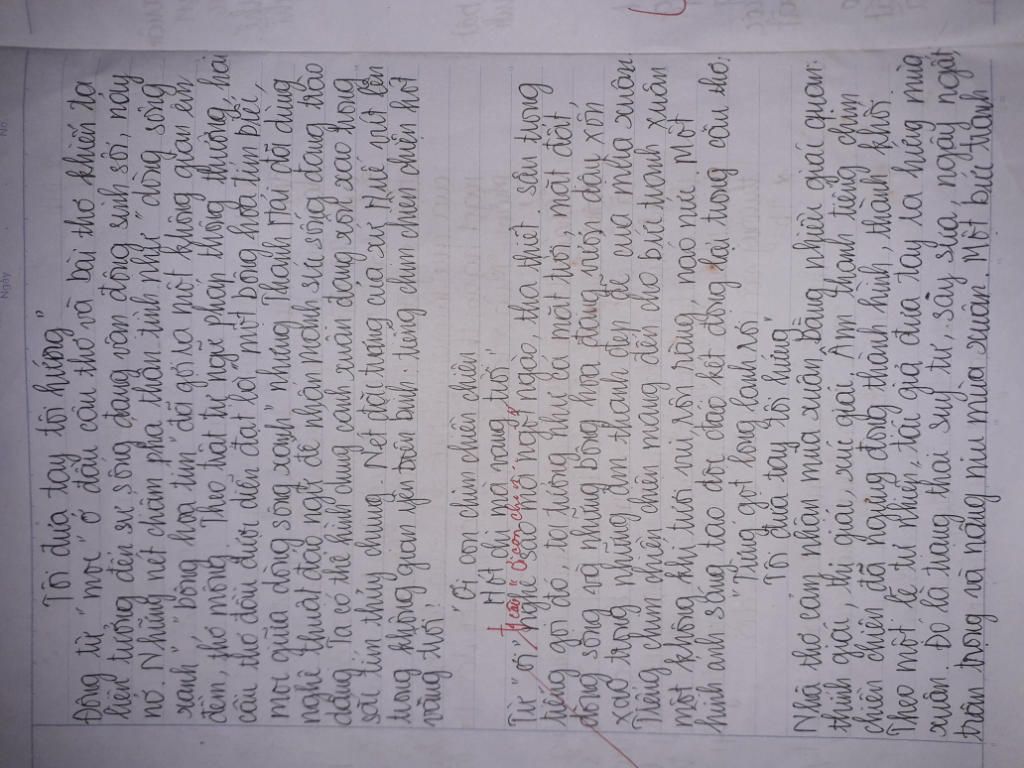 Tôi đưa tay tôi hứng"
Động từ "mọc" ở đầu câu thơ và bài thơ khiến ta
liên tưởng đến sự sống đang vận động sinh sôi, nảy
nở. Những nét chấm phá thần tình như "dòng sông
xanh" "bông hoa tím" đã gợi ra một không gian êm
đềm, thơ mộng. Theo trật tự ngữ pháp thông thường, hai
câu thơ đầu được diễn đạt là: một bông hoa tím biếc,
mọc giữa dòng sông xanh" nhưng Thanh Hải đã dùng
nghệ thuật đảo ngữ để nhấn mạnh sức sống đang trào
dâng. Ta có thể hình dung cảnh xuân đang xôn xao trong
sắc tím thủy chung. Nét đặc trưng của xứ Huế vút lên
trong không gian yên bình. tiếng chim chiền chiện hót
vang trời:
"Ơi con chim chiền chiện
Hót chi mà vang trời"
Từ "ơi" nghe sao mà ngọt ngào, tha thiết. sâu trong
tr này "ơi con chim"
tiếng gọi đó, ta tưởng như cả mặt trời, mặt đất,
dòng sông và những bông hoa đang vươn dậy xôn
xao trong những âm thanh đẹp đẽ của mùa xuân.
Tiếng chim chiền chiện mang đến cho bức tranh xuân
một không khí tươi vui rộn ràng, náo nức. Một
hình ảnh sáng tạo độc đáo kết đọng lại trong câu thơ:
"Từng giọt long lanh rơi
Tôi đưa tay tôi hứng"
Nhà thơ cảm nhận mùa xuân bằng nhiều giác quan:
thính giác, thị giác, xúc giác. Âm thanh tiếng chim
chiền chiện đã ngưng đọng thành hình, thành khối.
Theo một lẽ tự nhiên, tác giả đưa tay ra hứng mùa
xuân. Đó là trạng thái suy tư, say sưa, ngây ngất,
trân trọng và nâng niu mùa xuân. Một bức tranh
Ngày
No.